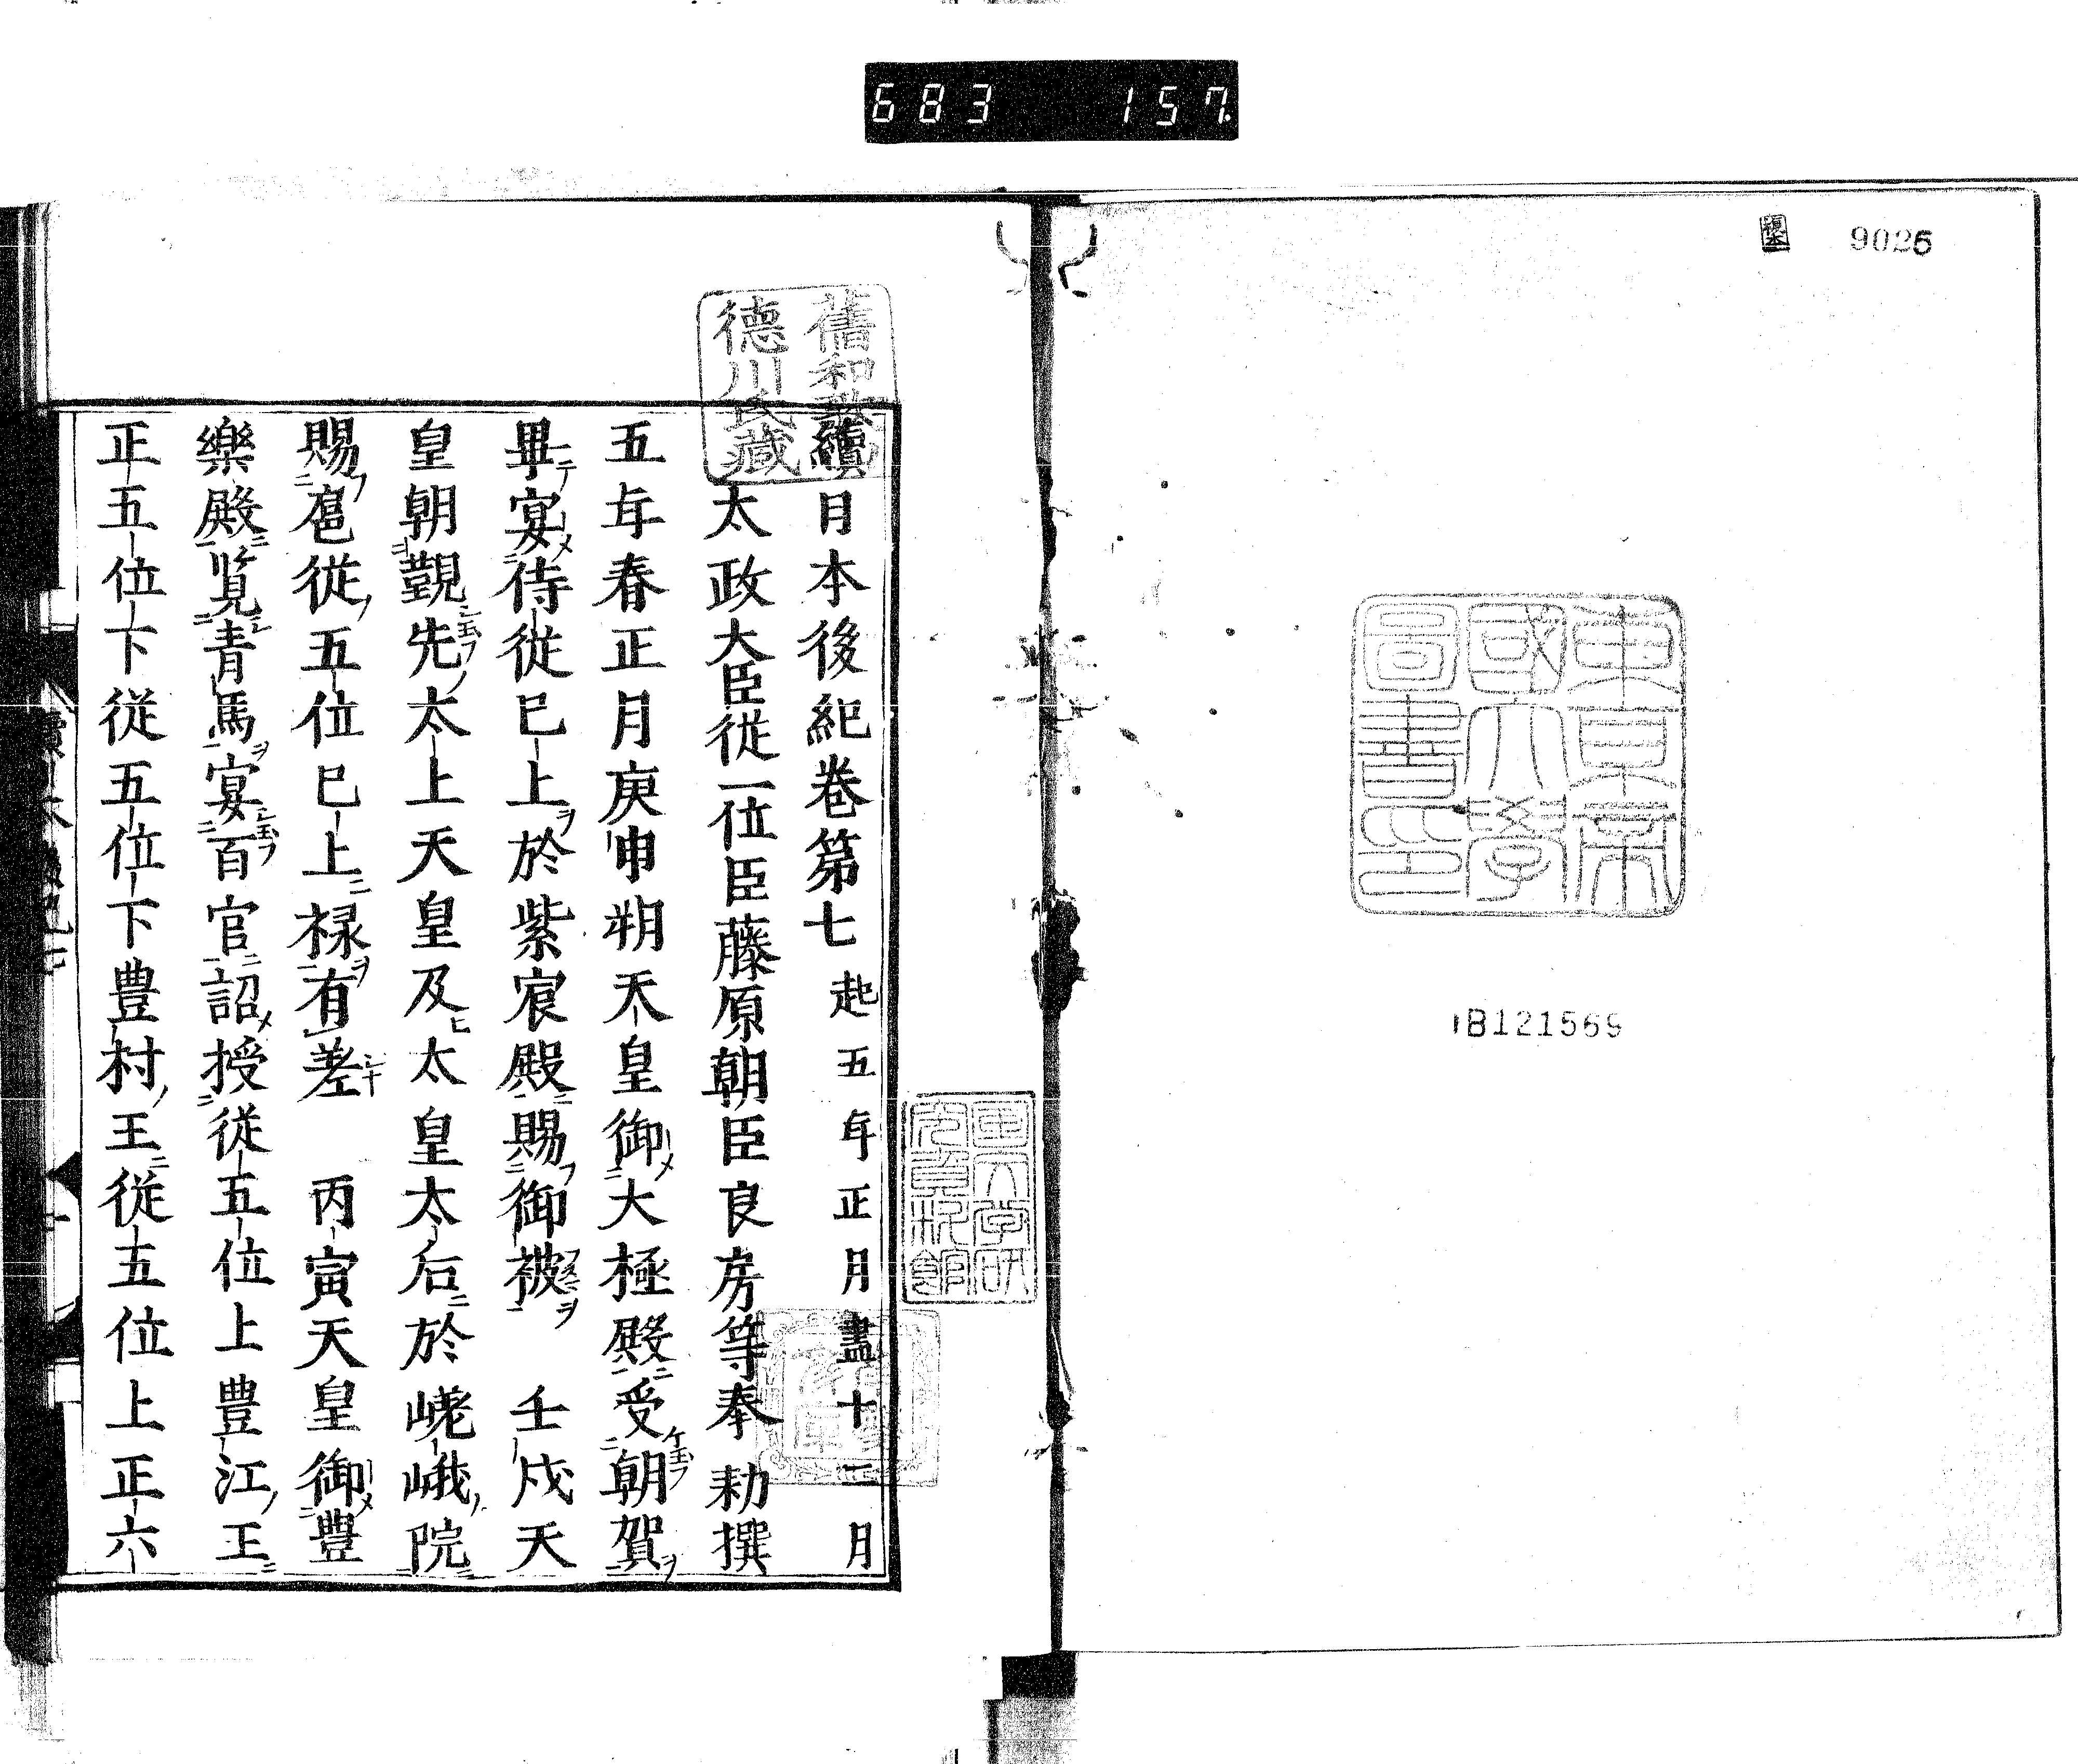 683 157
9026
東京帝
國大學
圖書印
1B121569
舊和歌山
德川氏藏
續日本後紀卷第七 起五年正月盡十二月
太政大臣從一位臣藤原朝臣良房等奉勅撰
五年春正月庚申朔天皇御大極殿受朝賀
畢宴侍從已上於紫宸殿賜御被 壬戌天
皇朝覲先太上天皇及太皇太后於嵯峨院
賜扈從五位已上祿有差 丙寅天皇御豐
樂殿覽青馬宴百官詔授從五位上豊江王
正五位下從五位下豊村王從五位上正六